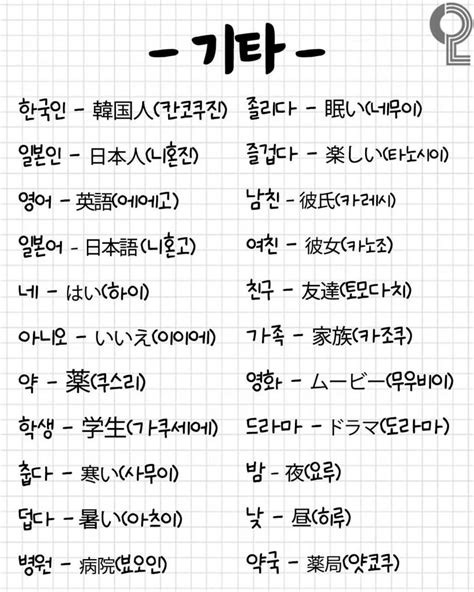 - 기타 -
한국인 - 韓国人(칸코쿠진)
일본인 - 日本人(니혼진)
영어 - 英語(에에고)
일본어 - 日本語(니혼고)
네 - はい(하이)
아니오 - いいえ(이이에)
약 - 薬(쿠스리)
학생 - 学生(가쿠세에)
춥다 - 寒い(사무이)
덥다 - 暑い(아츠이)
병원 - 病院(뵤오인)
졸리다 - 眠い(네무이)
즐겁다 - 楽しい(타노시이)
남친 - 彼氏(카레시)
여친 - 彼女(카노조)
친구 - 友達(토모다치)
가족 - 家族(카조쿠)
영화 - ムービー(무우비이)
드라마 - ドラマ(도라마)
밤 - 夜(요루)
낮 - 昼(히루)
약국 - 薬局(얏쿄쿠)